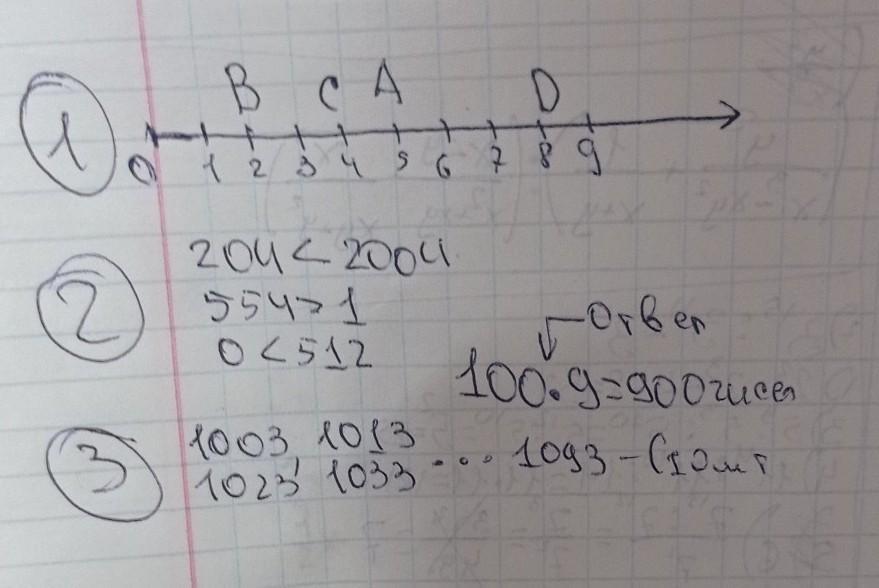 1
B C A D
0 1 2 3 4 5 6 7 8 9
2
204 < 2004
554 > 1
0 < 512
Ответ
100 · 9 = 900 чисел
3
1003, 1013
1023, 1033 ... 1093 - (10шт